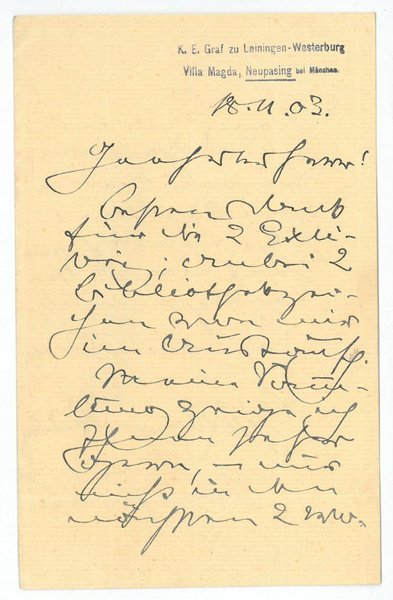 K. E. Graf zu Leiningen-Westerburg
Villa Magda, Neupasing bei München.
18.11.03.
Hochgeehrter Herr!
Besten Dank
für die 2 Exli-
bris; anbei 2
Bibliothekzei-
chen von mir
im Austausch.
Meine Samm-
lung zeige ich
Ihnen sehr
gern, – nur
nicht in den
nächsten 2